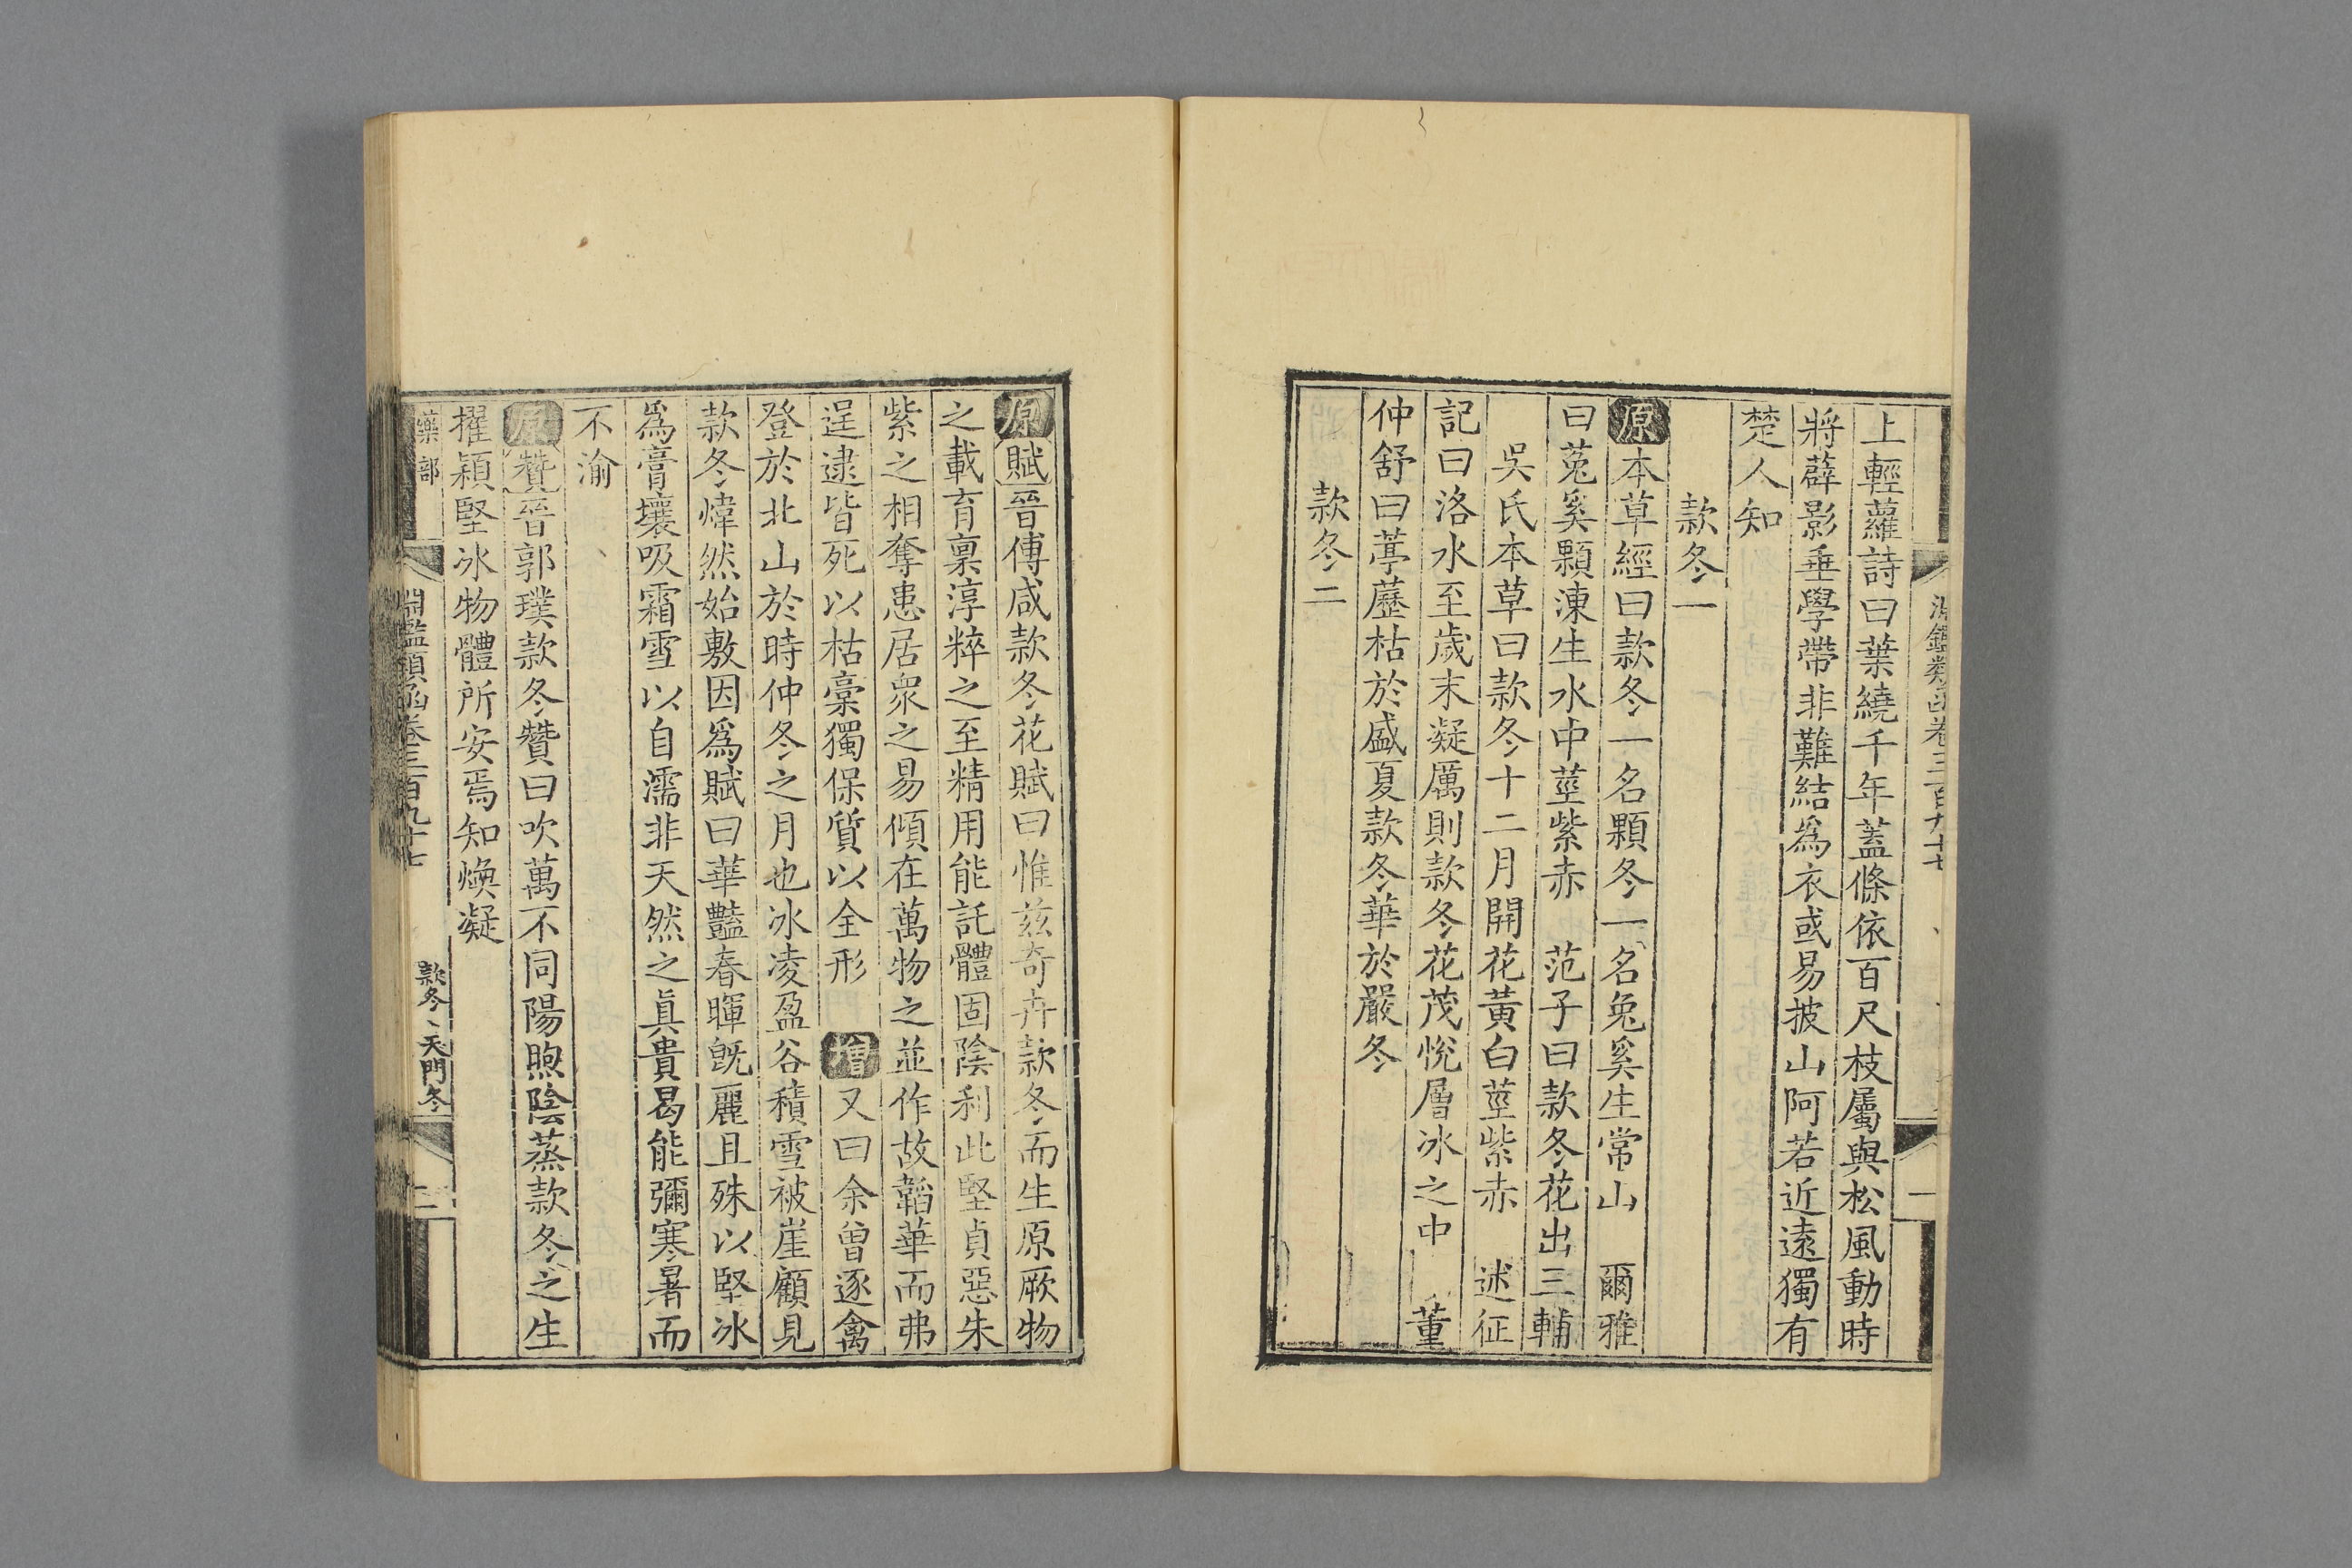 上輕蘿詩曰葉繞千年蓋條依百尺枝屬與松風動時
將薜影垂學帶非難結爲衣或易披山阿若近遠獨有
楚人知
款冬一
原本草經曰款冬一名顆冬一名兔奚生常山　爾雅
曰菟奚顆涷生水中莖紫赤　范子曰款冬花出三輔
吳氏本草曰款冬十二月開花黃白莖紫赤　述征
記曰洛水至歲末凝厲則款冬花茂悅層冰之中　董
仲舒曰葶藶枯於盛夏款冬華於嚴冬
款冬二
原賦晉傅咸款冬花賦曰惟茲奇卉款冬而生原厥物
之載育稟淳粹之至精用能託體固陰利此堅貞惡朱
紫之相奪患居衆之易傾在萬物之並作故韜華而弗
逞逮皆死以枯槀獨保質以全形　增又曰余曾逐禽
登於北山於時仲冬之月也冰凌盈谷積雪被崖顧見
款冬煒然始敷因爲賦曰華豔春暉旣麗且殊以堅冰
爲膏壤吸霜雪以自濡非天然之眞貴曷能彌寒暑而
不渝
原贊晉郭璞款冬贊曰吹萬不同陽煦陰蒸款冬之生
擢穎堅冰物體所安焉知煥凝
藥部　淵鑑類函卷三百九十七　款冬、天門冬　二